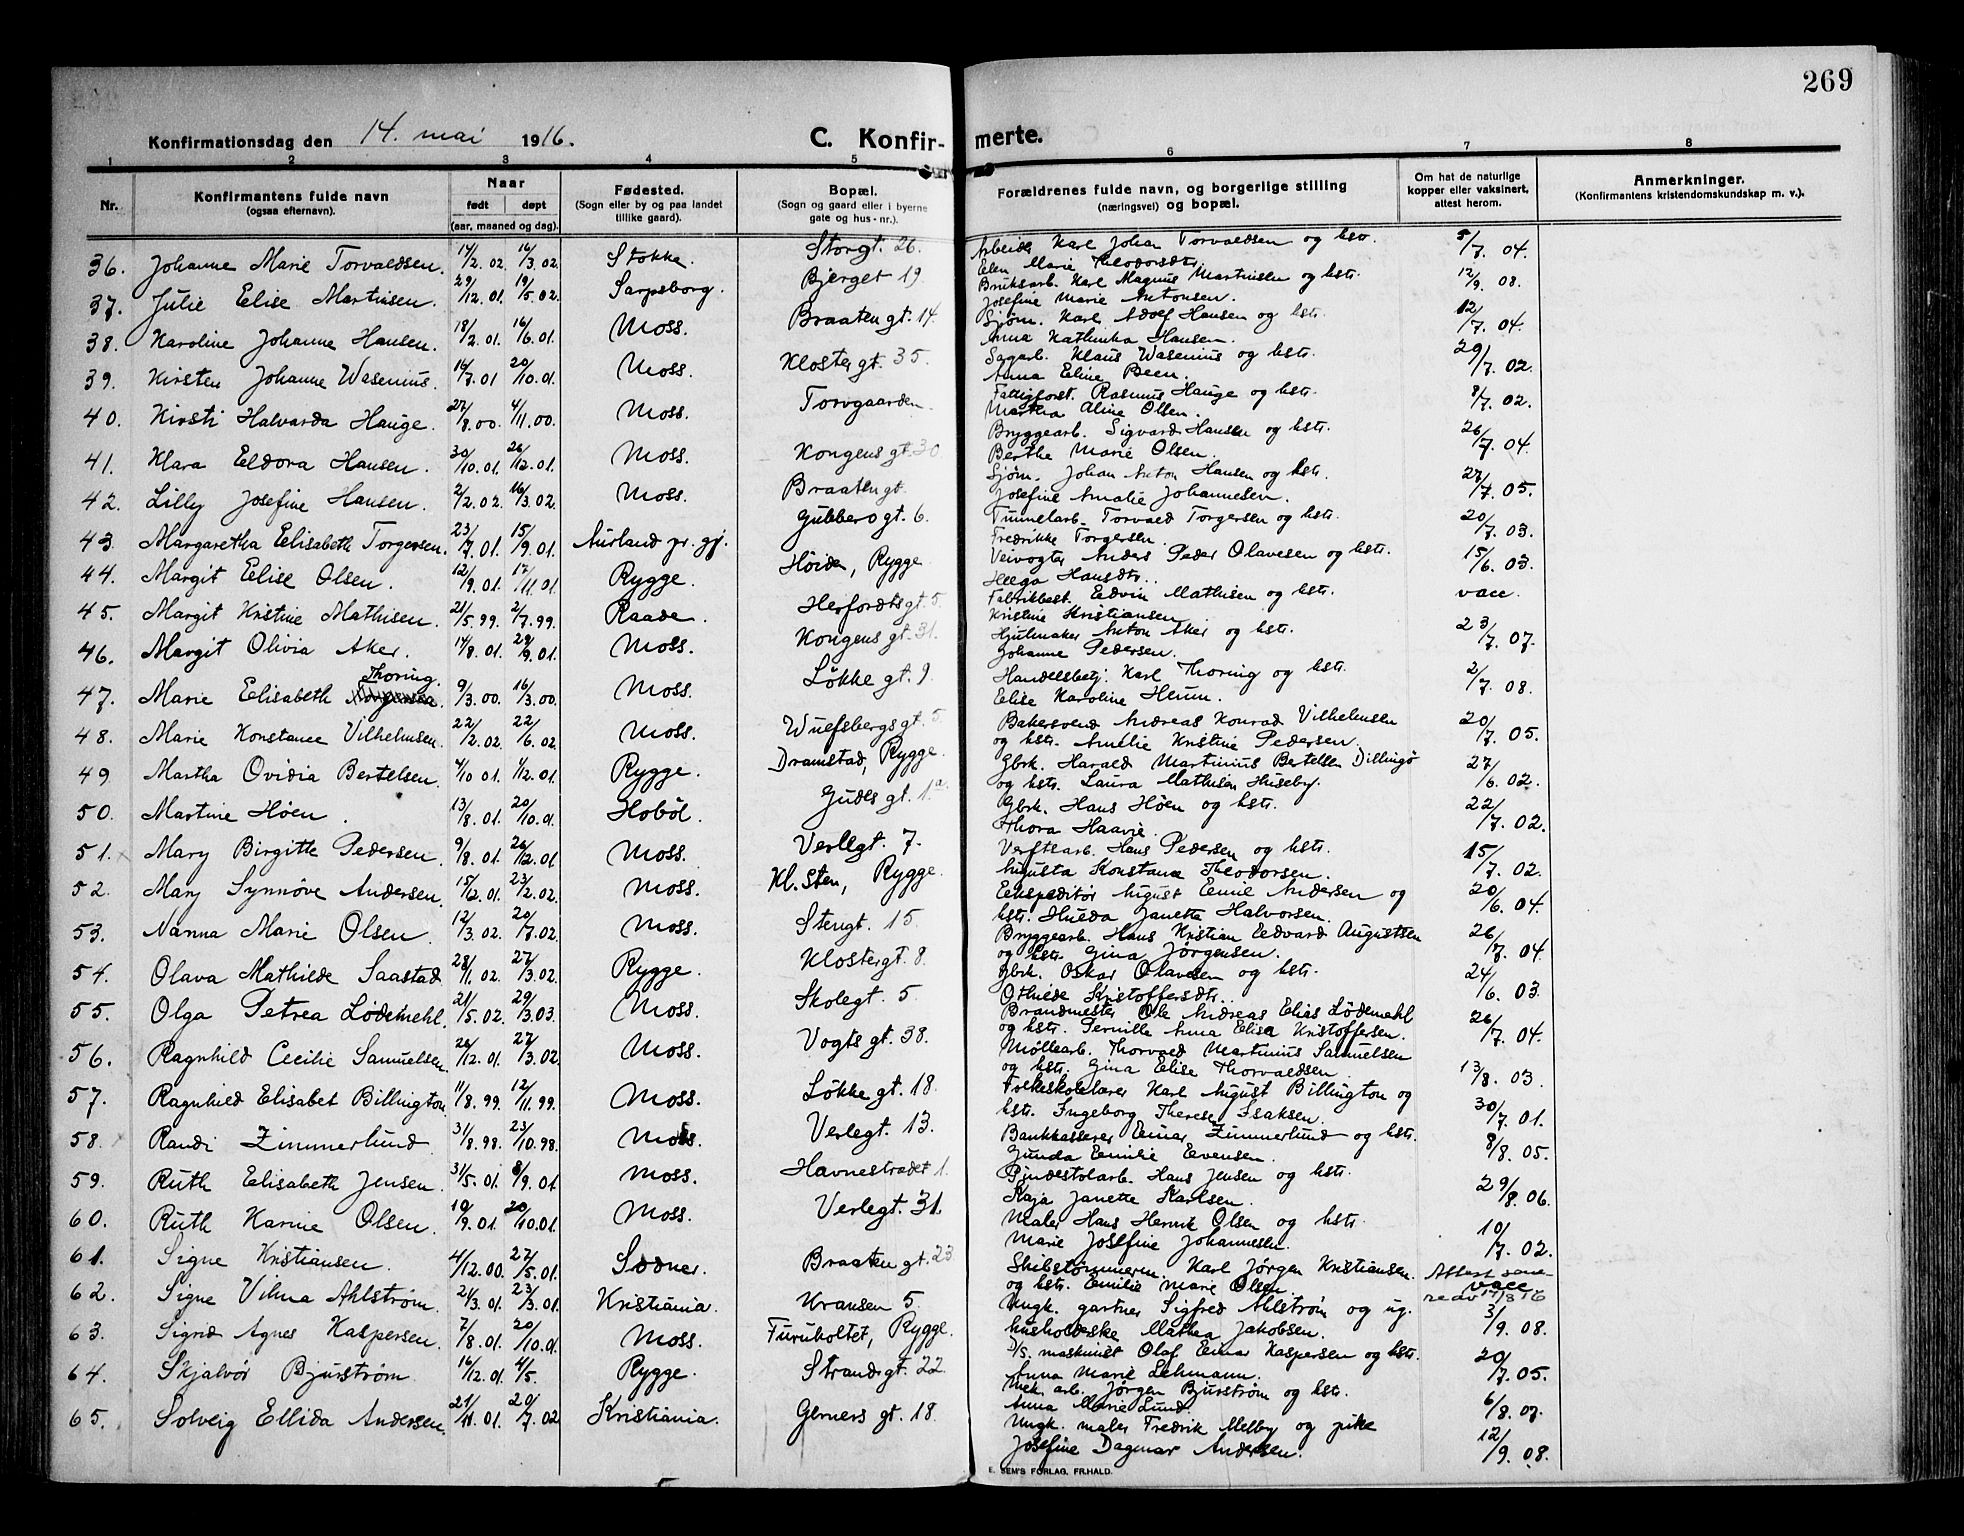 269
Konfirmationsdag den 14. mai 1916.
C. Konfirmerte.
1 2 3 4 5 6 7 8
Nr. Konfirmantens fulde navn (ogsaa efternavn). Naar født døpt (aar, maaned og dag). Fødested. (Sogn eller by og paa landet tillike gaard). Bopæl. (Sogn og gaard eller i byerne gate og hus-nr.). Forældrenes fulde navn, og borgerlige stilling (næringsvei) og bopæl. Om hat de naturlige kopper eller vaksinert, attest herom. Anmerkninger. (Konfirmantens kristendomskundskap m. v.).
36. Johanne Marie Torvaldsen. 14/2.02. 16/3.02. Stokke. Storgt. 26. Arbeider Karl Johan Torvaldsen og hstr. 5/7. 04.
Elen Marie Theodorsdtr.
37. Julie Elise Martinsen. 29/12.01. 19/5.02. Sarpsborg. Bjerget 19. Bruksarb. Karl Magnus Martinsen og hstr. 12/9. 08.
Josefine Marie Antonsen.
38. Karoline Johanne Hansen. 18/2.01. 16/6.01. Moss. Braaten gt. 14. Sjøm. Karl Adolf Hansen og hstr. 12/7. 04.
Anna Kathinka Hansen.
39. Kirsten Johanne Wasenius. 14/7.01 20/10.01. Moss. Kloster gt. 35. Sagarb. Klaus Wasenius og hstr. 29/7. 02.
Anna Eline Been.
40. Kirsti Halvarda Hauge. 27/8.00. 4/11.00. Moss. Torvgaarden. Fattigforst. Rasmus Hauge og hstr. 8/7. 02.
Martha Aline Olsen.
41. Klara Eldora Hansen. 30/10.01. 26/12.01. Moss. Kongens gt. 30. Bryggearb. Sigvard Hansen og hstr. 26/7. 04.
Berthe Marie Olsen.
42. Lilly Josefine Hansen. 2/2.02. 16/3.02. Moss. Braaten gt. Sjøm. Johan Anton Hansen og hstr. 27/7. 05.
Josefine Amalie Johannesen.
43. Margaretha Elisabeth Torgersen. 23/7.01. 15/9.01. Aurland pr. gj. Gubbero gt. 6. Tunnelarb. Torvald Torgersen og hstr. 20/7. 03.
Fredrikke Torgersen.
44. Margit Elise Olsen. 12/9.01. 17/11.01. Rygge. Høiden, Rygge. Veivogter Anders Peder Olavesen og hstr. 15/6. 03.
Helga Hansdtr.
45. Margit Kristine Mathisen. 21/5.99. 2/7.99. Raade. Herfordts gt. 5. Fabrikbest. Edvin Mathisen og hstr. vacc.
Kristine Kristiansen
46. Margit Olivia Aker. 14/8.01. 29/9.01. Moss. Kongens gt. 31. Hjulmaker Anton Aker og hstr. 23/7. 07.
Johanne Pedersen.
47. Marie Elisabeth Thoring. 9/3.00. 16/3.00. Moss. Løkke gt. 9. Handelsbetj. Karl Thoring og hstr. 2/7. 08.
Elise Karoline Herum.
48. Marie Konstance Vilhelmsen. 22/2.02. 22/6.02. Moss. Wulfsbergs gt. 5. Bakersvend Andreas Konrad Vilhelmsen 20/7. 05.
og hstr. Amelie Kristine Pedersen.
49. Martha Ovidia Bertelsen. 4/10 01. 1/12.01. Rygge. Dramstad, Rygge. Gbrk. Harald Martinius Bertelsen Dillingø 27/6. 02.
og hstr. Laura Mathisen Huseby.
50. Martine Høen. 13/8.01. 20/10.01. Hobøl. Gudes gt. 1a Gbrk. Hans Høen og hstr. 22/7. 02.
Thora Haavie.
51. Mary Birgitte Pedersen. 9/8.01. 26/12.01. Moss. Verllgt. 7. Verftsarb. Hans Pedersen og hstr. 15/7. 02.
Augusta Konstance Theodorsen.
52. Mary Synnøve Andersen. 15/12.01. 23/2.02. Moss. Kl. Sten, Rygge. Ekspeditør August Emil Andersen og 20/6. 04.
hstr. Hulda Janette Halvorsen.
53. Nanna Marie Olsen. 12/3.02. 20/7.02. Moss. Stengt. 15. Bryggearb. Hans Kristian Edvard Augustsen 26/7. 04.
og hstr. Gina Jørgensen.
54. Olava Mathilde Saastad. 28/1.02. 27/3.02. Rygge. Klostergt. 8. Gbrk. Oskar Olavesen og hstr. 24/6. 03.
Othilde Kristoffersdtr.
55. Olga Petrea Lødemehl. 21/5.02. 29/3.03. Moss. Skolegt. 5. Brandmester Ole Andreas Elias Lødemehl 26/7. 04.
og hstr. Pernille Anna Elisa Kristoffersen.
56. Ragnhild Cecilie Samuelsen. 26/12.01. 27/3.02. Moss. Vogts gt. 38. Møllearb. Thorvald Martinius Samuelsen 13/8. 03.
og hstr. Gina Elise Thorvaldsen.
57. Ragnhild Elisabet Billington. 11/8.99. 12/11.99. Moss. Løkke gt. 18. Folkeskolelærer Karl August Billington og 30/7. 01.
hstr. Ingeborg Therese Isaksen.
58. Randi Zimmerlund. 31/8.98. 23/10.98. Moss. Verlegt. 13. Bankkasserer Einar Zimmerlund og hstr. 8/8. 05.
Gunda Emilie Evensen.
59. Ruth Elisabeth Jensen. 31/5.01. 8/9.01. Moss. Havnestrædet 1. Pindestolarb. Hans Jensen og hstr. 29/8. 06.
Kaja Janette Karlsen.
60. Ruth Karine Olsen. 19/9.01. 20/10.01. Moss. Verlegt. 31. Maler Hans Henrik Olsen og hstr. 10/7. 02.
Marie Josefine Johannesen.
61. Signe Kristiansen. 4/12.00. 27/5.01. Soner. Braaten gt. 23. Skibstømmerm. Karl Jørgen Kristiansen. Attest sene-
og hstr. Emilie Marie Olsen. vacc.
re av 17/8 16
62. Signe Vilma Ahlstrøm. 24/3.01. 23/3.01. Kristiania. Kransen 5. Ungk. gartner Sigfred Ahlstrøm og ug. 3/9. 08.
husholderske Mathea Jakobsen.
63. Sigrid Agnes Kaspersen. 7/8.01. 20/10.01. Moss. Furuholtet, Rygge. D/S. maskinist Olaf Einar Kaspersen og hstr. 20/7. 05.
Anna Marie Lehmann.
64. Skjalvør Bjurstrøm. 16/12.01. 4/5. Rygge. Strandgt. 22. Mek. arb. Jørgen Bjurstrøm og hstr. 6/8. 07.
Anna Marie Lund.
65. Solveig Ellida Andersen. 21/11.01. 20/7.02 Kristiania. Gerners gt. 18. Ungk. maler Fredrik Melby og pike 12/9. 08.
Josefine Dagmar Andersen.
E. SEM'S FORLAG, FR.HALD.